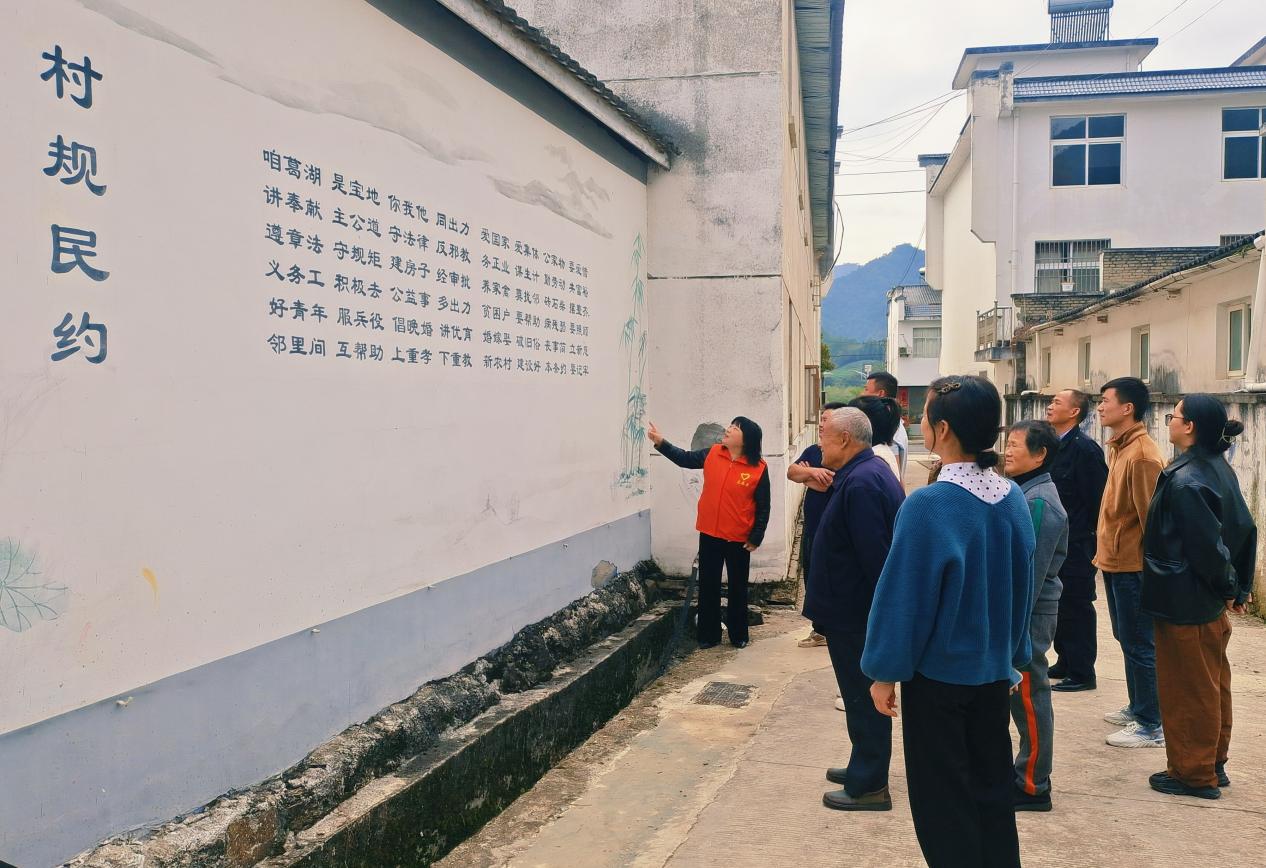 村规民约
咱葛湖 是宝地 你我他 同出力 爱国家 爱集体 公家物 要爱惜
讲奉献 主公道 守法律 反邪教 务正业 谋生计 勤劳动 共富裕
遵章法 守规矩 建房子 经审批 养家禽 莫扰邻 砖石柴 摆整齐
义务工 积极去 公益事 多出力 贫困户 要帮助 病残弱 要照顾
好青年 服兵役 倡晚婚 讲优育 婚嫁娶 破旧俗 丧事简 立新风
邻里间 互帮助 上重孝 下重教 新农村 建设好 本条约 要记牢